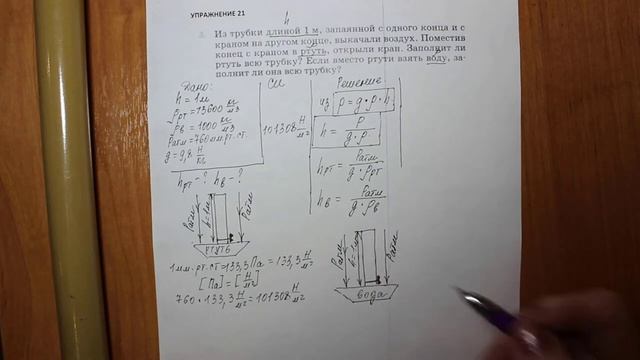 УПРАЖНЕНИЕ 21
h
Из трубки длиной 1 м, запаянной с одного конца и с
краном на другом конце, выкачали воздух. Поместив
конец с краном в ртуть, открыли кран. Заполнит ли
ртуть всю трубку? Если вместо ртути взять воду, за-
полнит ли она всю трубку?
Дано:
h = 1м
ρрт = 13600 кг/м3
ρв = 1000 кг/м3
Pатм = 760 мм.рт.ст.
g = 9,8 Н/кг
hрт - ? hв - ?
СИ
101308 Н/м²
Решение
из p = g·ρ·h
h = P/g·ρ
hрт = Pатм/g·ρрт
hв = Pатм/g·ρв
Pатм
h=1м
Pатм
РТУТЬ
1мм.рт.ст = 133,3Па = 133,3 Н/м²
[Па] = [Н/м²]
760 · 133,3 Н/м² = 101308 Н/м²
Pатм
h=1м
Pатм
вода